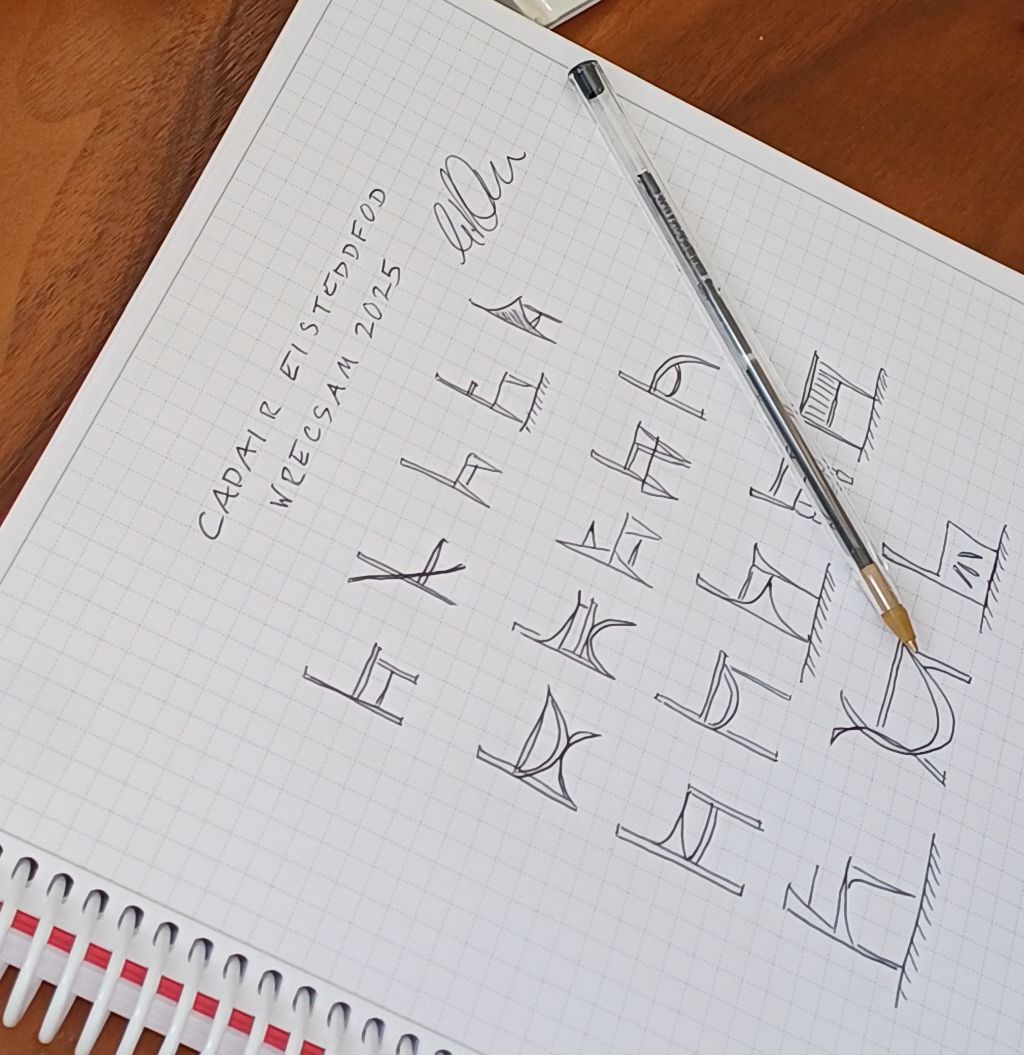 CADAIR EISTEDDFOD
WRECSAM 2025